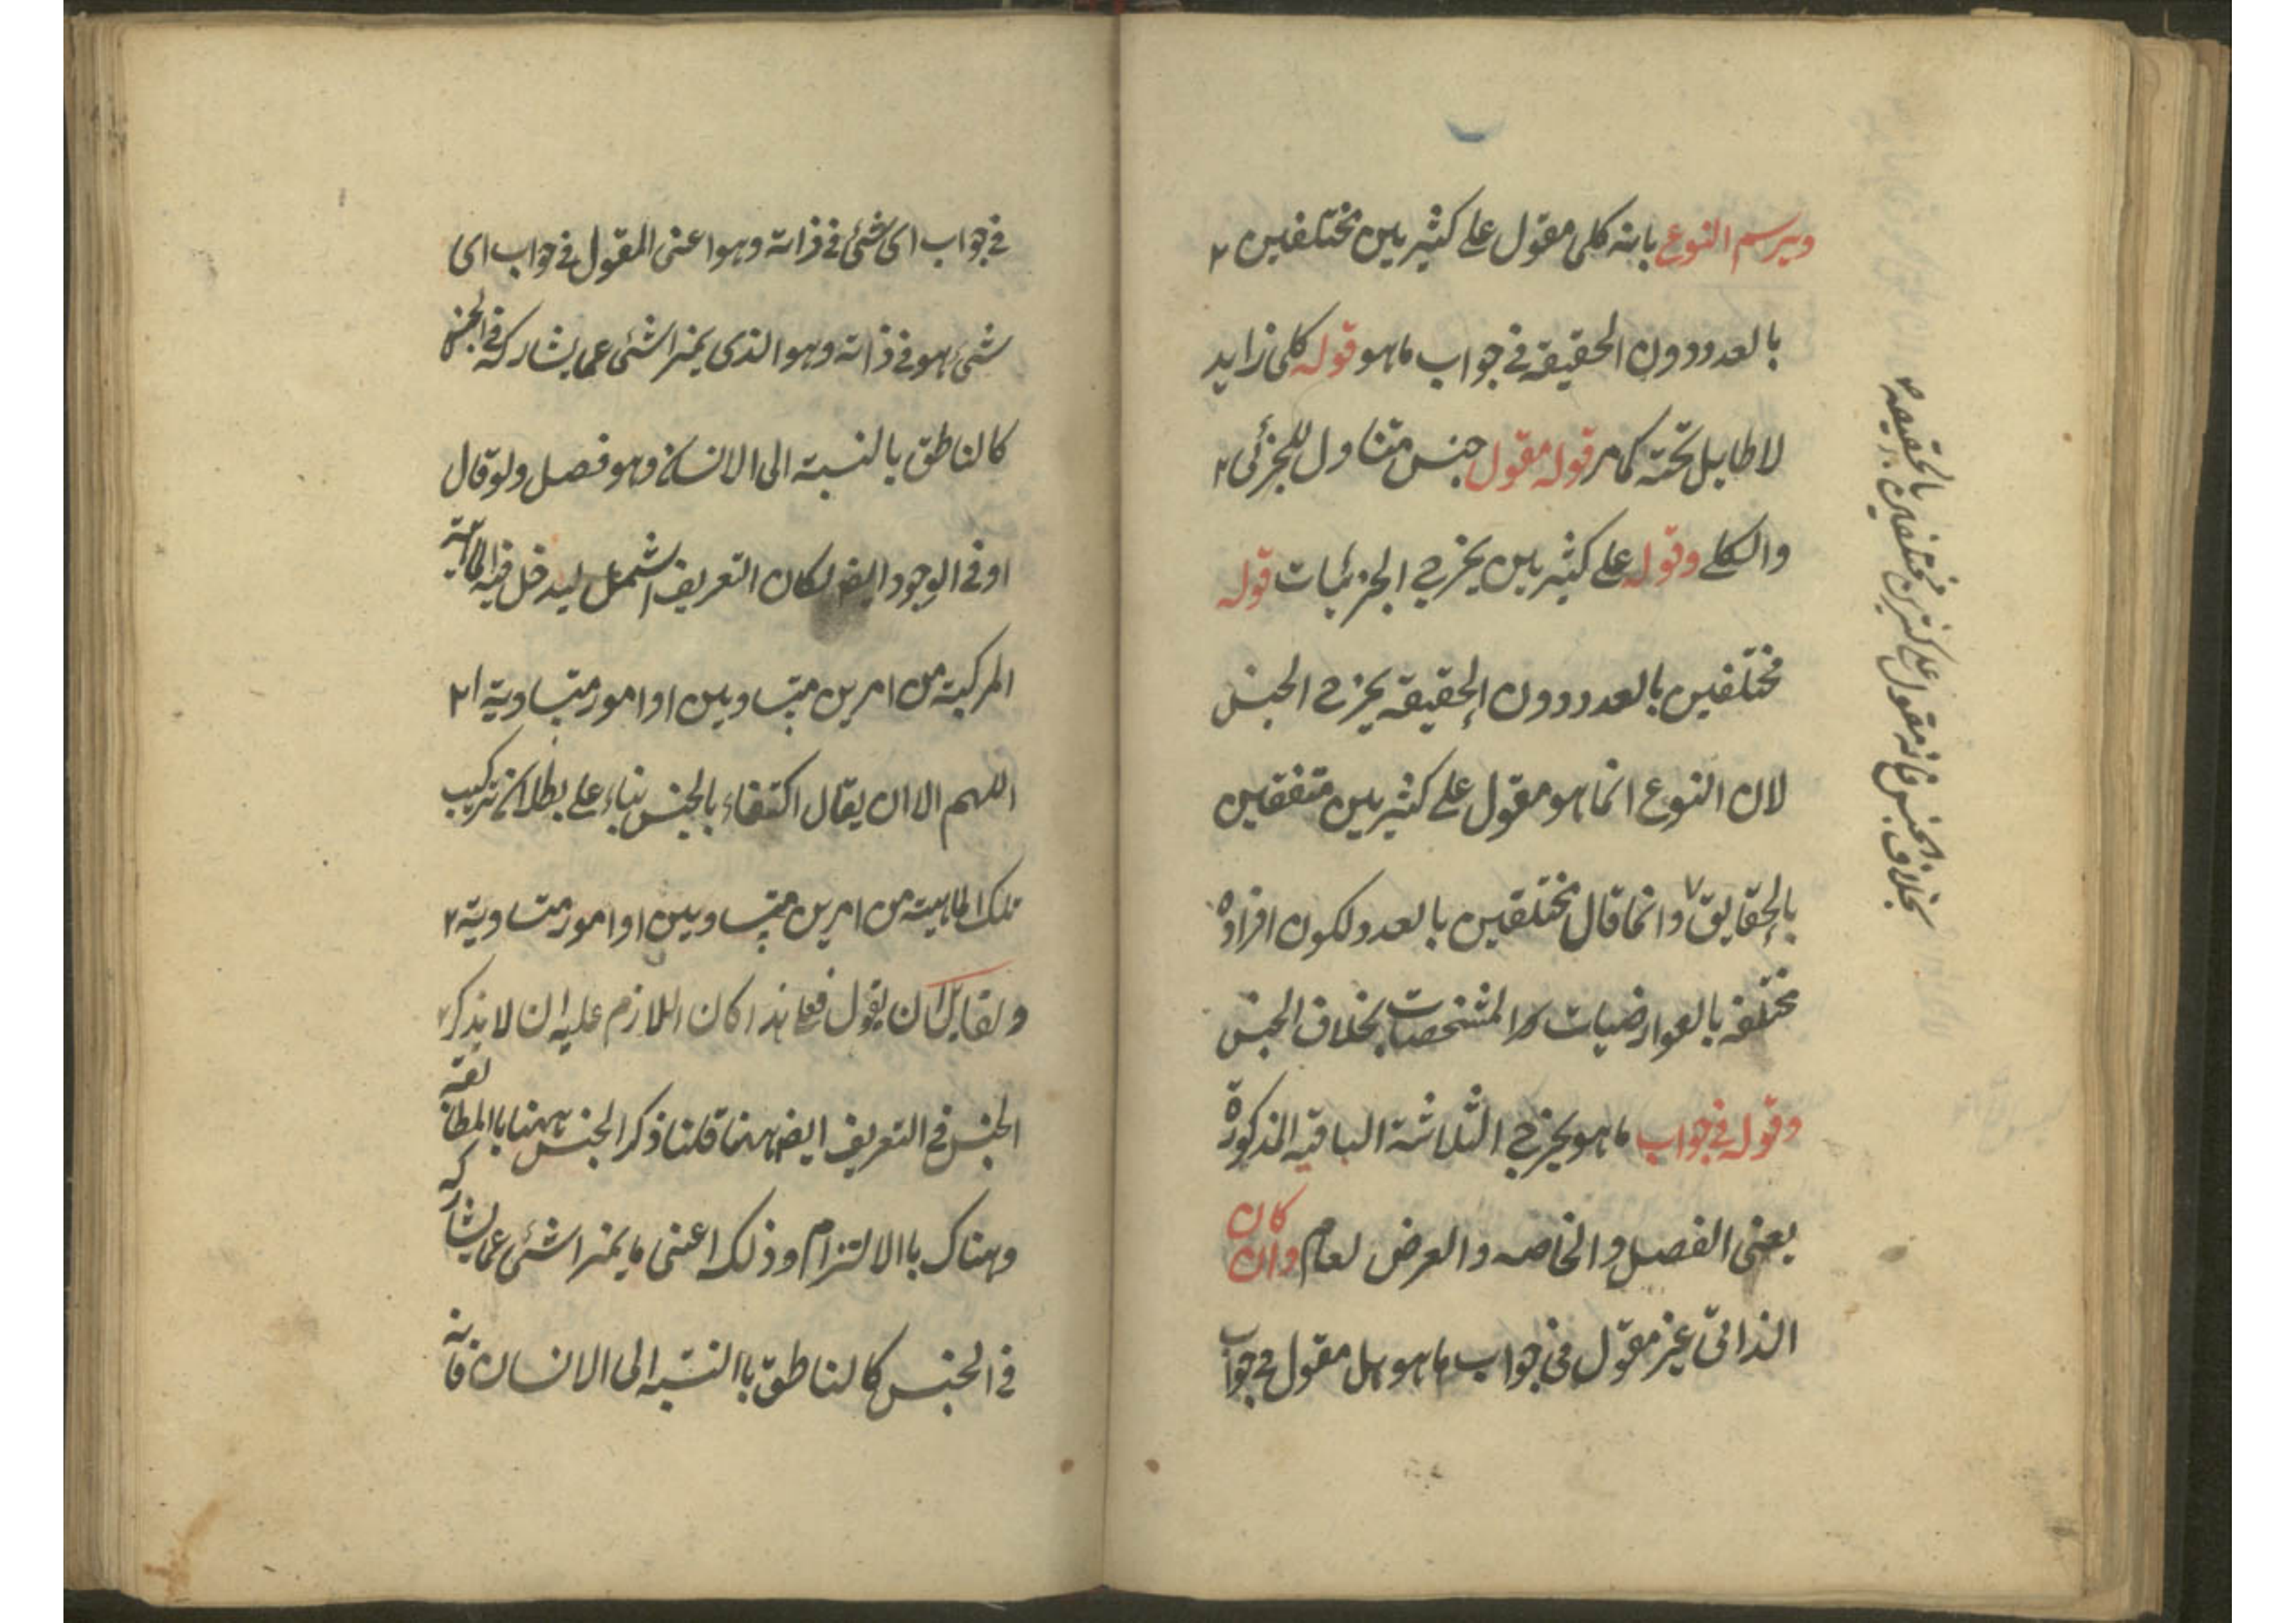 ويرسم النوع بانه كلى مقول على كثيرين مختلفين ٢
بالعدد دون الحقيقة فى جواب ماهو قوله كلى زايد
لا طايل تحته كما مر قوله مقول جنس متناول للجزئى ٢
والكلى وقوله على كثيرين يخرج الجزئيات قوله
مختلفين بالعدد دون الحقيقة يخرج الجنس
لان النوع انما هو مقول على كثيرين متفقين
بالحقايق ٧ وانما قال مختلفين بالعدد لكون افراده
مختلفة بالعوارضيات والمشخصات بخلاف الجنس
وقوله فى جواب ماهو يخرج الثلاثة الباقيه المذكورة
يعنى الفصل والخاصه والعرض لعام وان كان
الذاتى غير مقول فى جواب ماهو بل مقول فى جواب
بخلاف الجنس فانه مقول على كثيرين مختلفين بالحقيقة
فى جواب اى شئ فى ذاته وهو اعنى المقول فى جواب اى
شئ هو فى ذاته وهو الذى يميز الشئ عما يشاركه فى الجنس
كالناطق بالنسبة الى الانسان وهو فصل ولو قال
او فى الوجود ايضا لكان التعريف اشمل ليدخل فيه الماهية
المركبة من امرين متساويين او امور متساوية ٢١
اللهم الا ان يقال اكتفاء بالجنس بناء على بطلان تركيب
تلك الماهية من امرين متساويين او امور متساوية ٢
ولقايل ان يقول فعلى هذا كان اللازم عليه ان لا يذكر
الجنس فى التعريف ايضا ههنا قلنا ذكر الجنس ههنا باالمطابقة
وهناك باالالتزام وذلك اعنى ما يميز الشئ عما يشاركه
فى الجنس كالناطق باالنسبه الى الانسان فانه